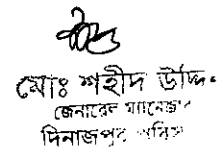 মোঃ শহীদ উদ্দিন
জেনারেল ম্যানেজার
দিনাজপুর